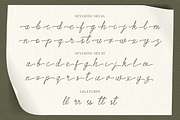 STYLISTIC SET 01
a b c d e f g h i j k l m
n o p q r s t u v w x y z
STYLISTIC SET 02
a b c d e f g h i j k l m
n o p q r s t u v w x y z
LIGATURES
ll rr ss tt st